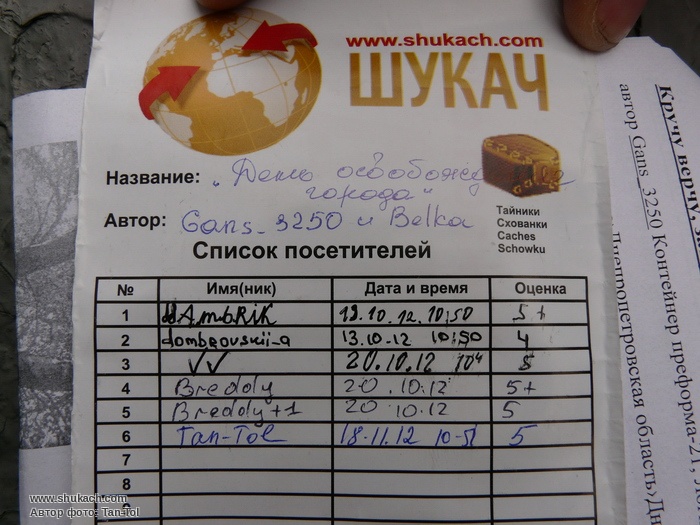 www.shukach.com
ШУКАЧ
Название: „День освобождения
города"
Автор: Gans_3250 и Belka
Тайники
Схованки
Caches
Schowku
Список посетителей
№ Имя(ник) Дата и время Оценка
1 13.10.12. 10:50 5+
2 dombrovskii_a 13.10.12 10:50 4
3 VV 20.10.12 5
4 Breddy 20.10.12 5+
5 Breddy+1 20 10.12 5
6 Tan-Tol 18.11.12 5
7
8
9
Кручу верчу
автор Gans_3250 Контейнер преформа-21,
Днепропетровская область>Дн
www.shukach.com
Автор фото: Tan-Tol